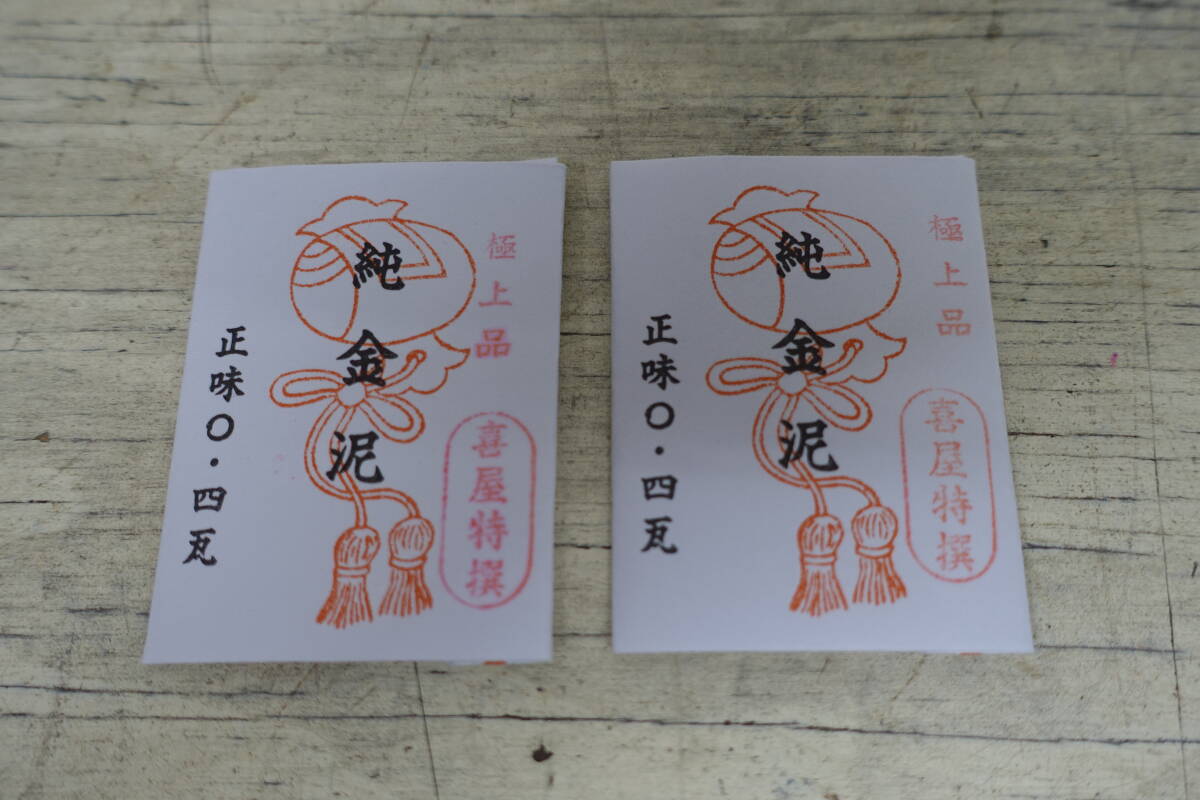 極上品
喜屋特撰
純金泥
正味〇・四瓦
極上品
喜屋特撰
純金泥
正味〇・四瓦